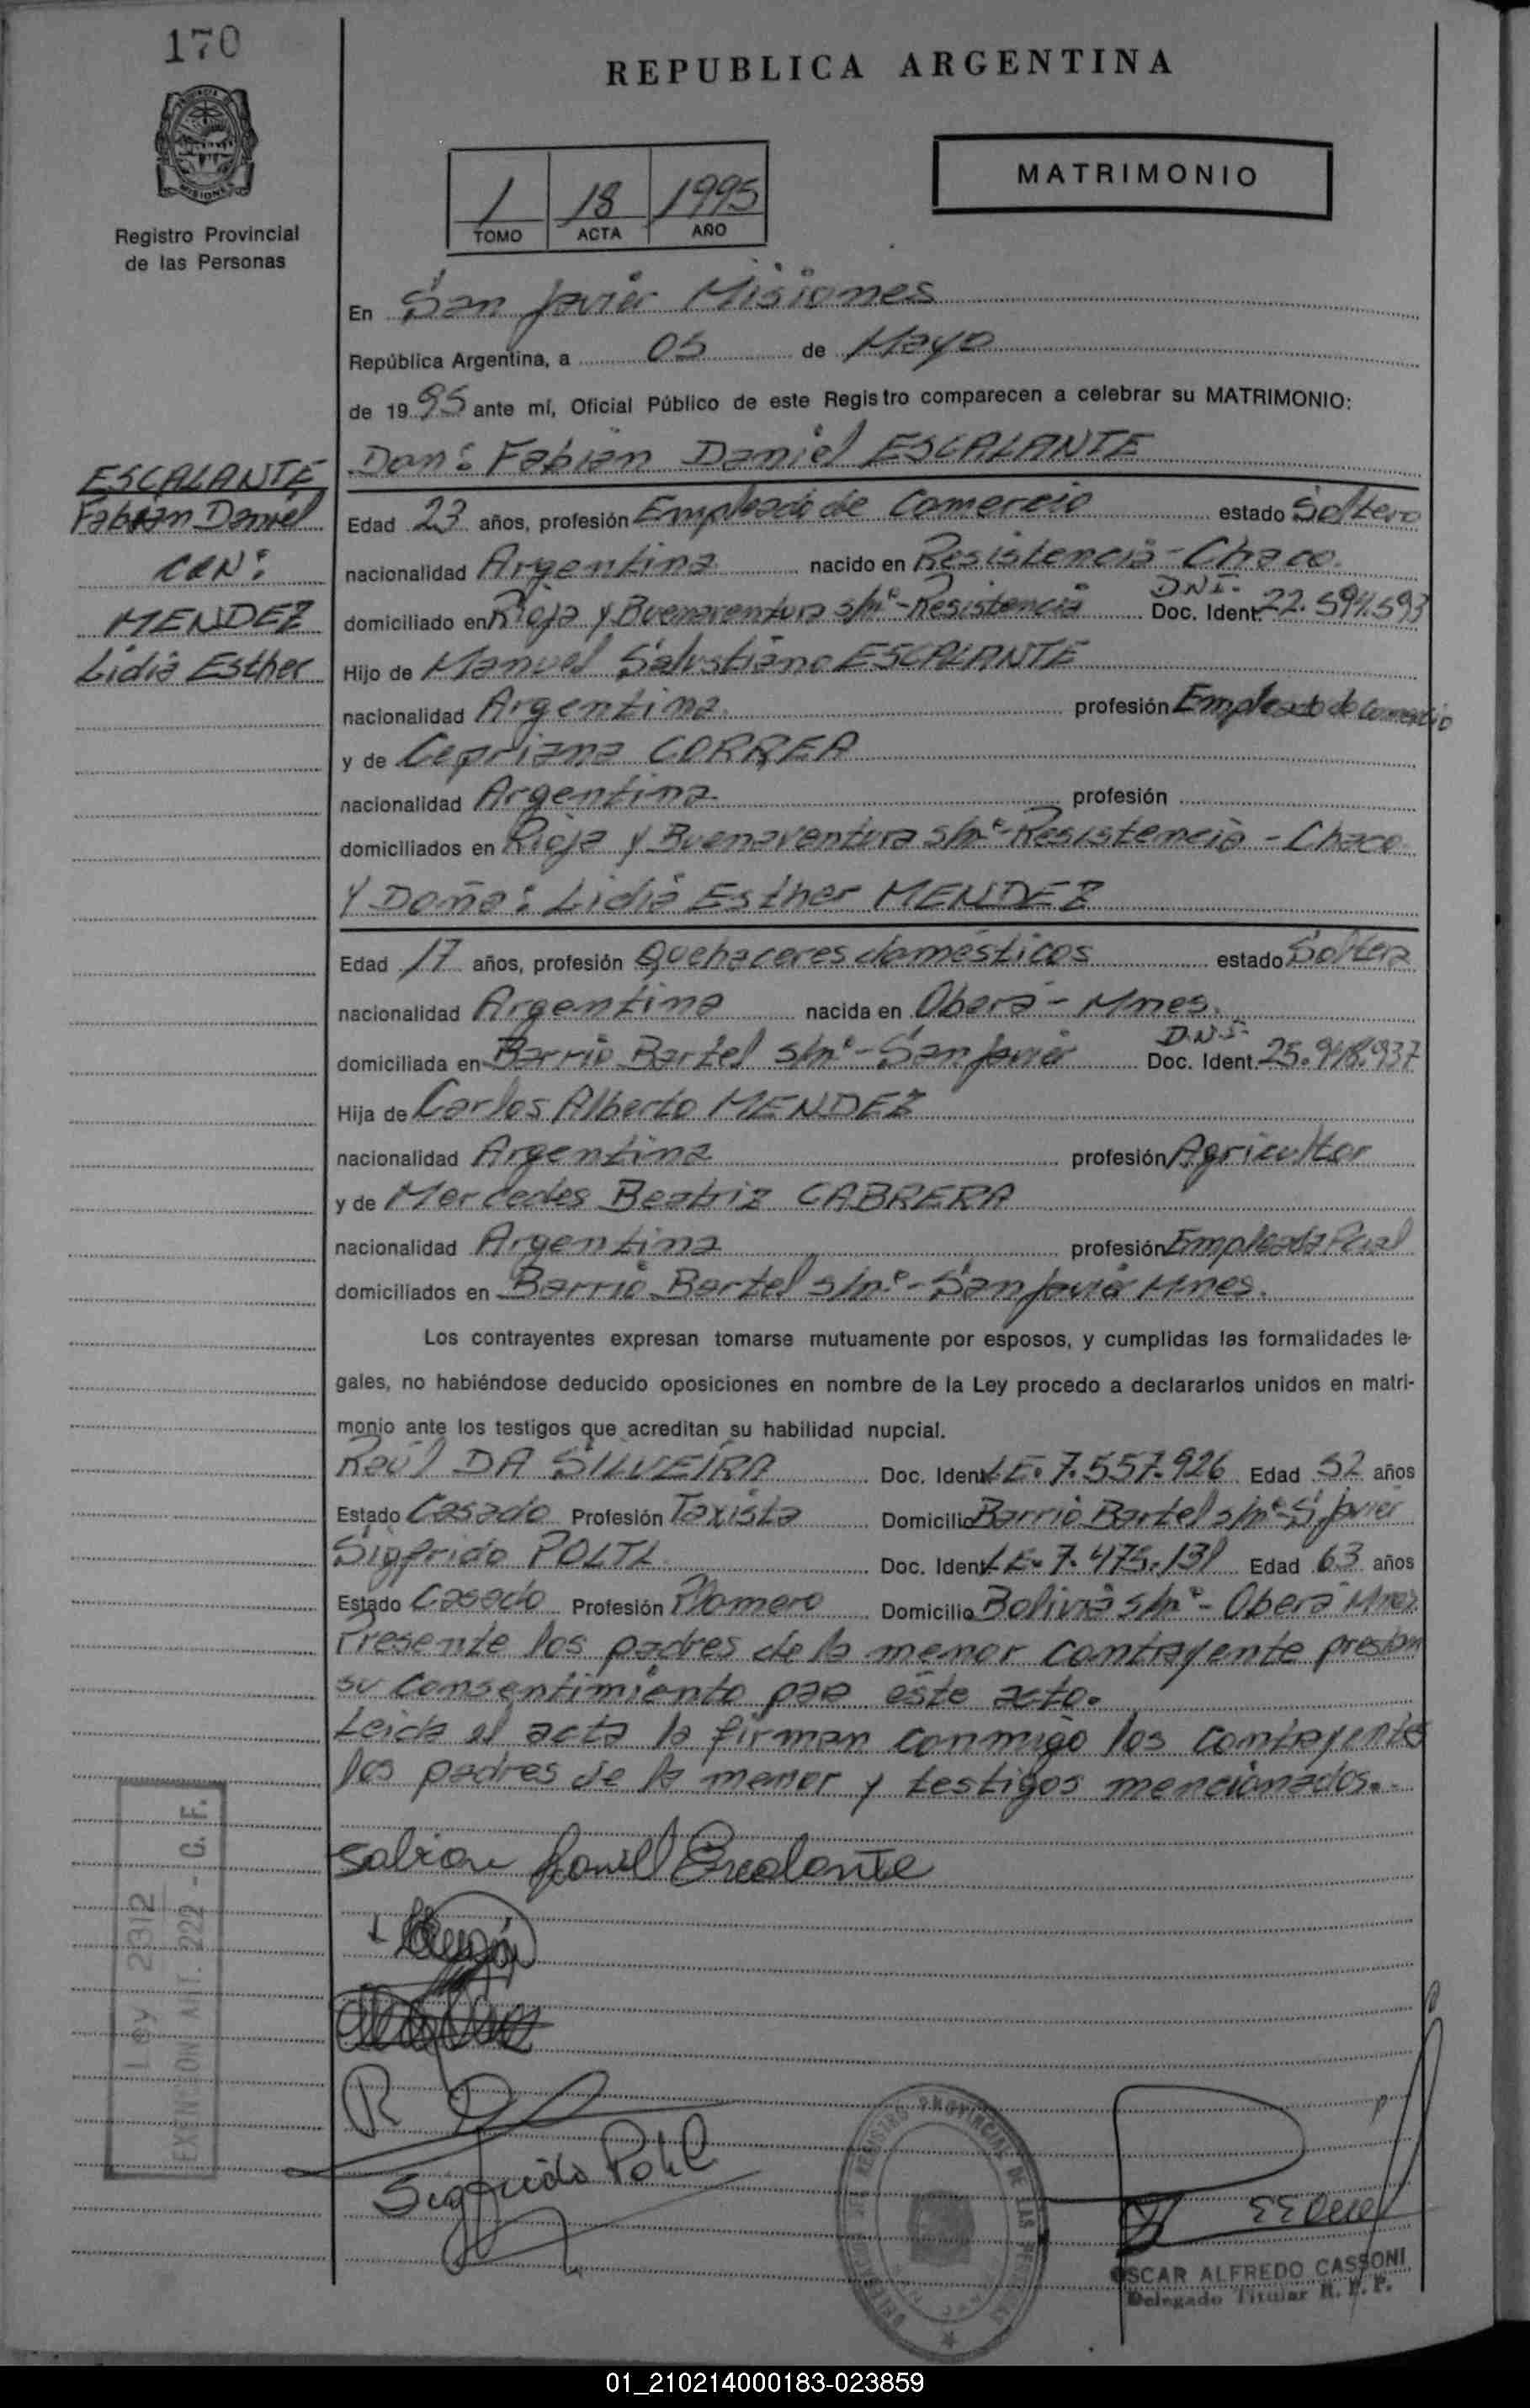 170
REPUBLICA ARGENTINA
MISIONES
Registro Provincial
de las Personas
1 18 1995
TOMO ACTA AÑO
MATRIMONIO
En San Javier Misiones
República Argentina, a 05 de Mayo
de 1995 ante mí, Oficial Público de este Registro comparecen a celebrar su MATRIMONIO:
Don: Fabián Daniel ESCALANTE
ESCALANTE
Fabian Daniel
CON:
MENDEZ
Lidia Esther
Edad 23 años, profesión Empleado de Comercio estado Soltero
nacionalidad Argentina nacido en Resistencia - Chaco.
domiciliado en Rioja y Buenaventura s/nº - Resistencia D.N.I. Doc. Ident. 22.594.593
Hijo de Manuel Salustiano ESCALANTE
nacionalidad Argentina profesión Empleado de Comercio
y de Cepriana CORREA
nacionalidad Argentina profesión
domiciliados en Rioja y Buenaventura s/nº - Resistencia - Chaco
Y Doña: Lidia Esther MENDEZ
Edad 17 años, profesión Quehaceres domésticos estado Soltera
nacionalidad Argentina nacida en Oberá - Mnes.
domiciliada en Barrio Bartel s/nº - San Javier D.N.I. Doc. Ident. 25.918.937
Hija de Carlos Alberto MENDEZ
nacionalidad Argentina profesión Agricultor
y de Mercedes Beatriz CABRERA
nacionalidad Argentina profesión Empleada Pcial
domiciliados en Barrio Bartel s/nº - San Javier Mnes.
Los contrayentes expresan tomarse mutuamente por esposos, y cumplidas las formalidades le-
gales, no habiéndose deducido oposiciones en nombre de la Ley procedo a declararlos unidos en matri-
monio ante los testigos que acreditan su habilidad nupcial.
Raúl DA SILVEIRA Doc. Ident. L.E. 7.557.926 Edad 52 años
Estado Casado Profesión Taxista Domicilio Barrio Bartel s/nº - S. Javier
Sigfrido POLTL Doc. Ident. L.E. 7.475.131 Edad 63 años
Estado Casado Profesión Plomero Domicilio Bolivia s/nº - Oberá Mnes
Presente los padres de la menor contrayente prestan
su consentimiento pae este acto.
Leida el acta la firman conmigo los contrayentes
los padres de la menor y testigos mencionados.
Fabian Daniel Escalante
Ley 2312
EXENCION ART. 222 - C. F.
Sigfrido Poltl
DELEGACION DEL REGISTRO PROVINCIAL DE LAS PERSONAS
OSCAR ALFREDO CASSONI
Delegado Titular R. P. P.
01_210214000183-023859